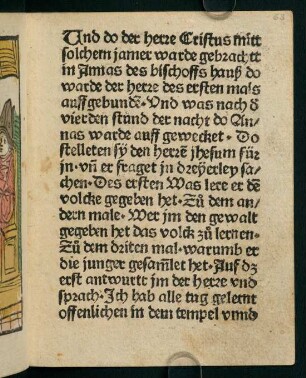 63
Und do der herre Cristus mitt
solchem jamer warde gebrachtt
in Annas des bischoffs hauß do
warde der herre des ersten mals
auff gebundē· Und was nach d̄
vierden stund der nacht do An-
nas warde auff gewecket· Do
stelleten sÿ den herrē jhesum für
jn· vñ er fraget in dreÿerley sa-
chen· Des ersten Was lere er dē
volcke gegeben het· Zů dem an-
dern male· Wer jm den gewalt
gegeben het das volck zů lernen·
Zů dem driten mal· warumb er
die junger gesam̄let het· Auf dz
erst antwurtt jm der herre vnd
sprach· Ich hab alle tag gelernt
offenlichen in dem tempel vnnd